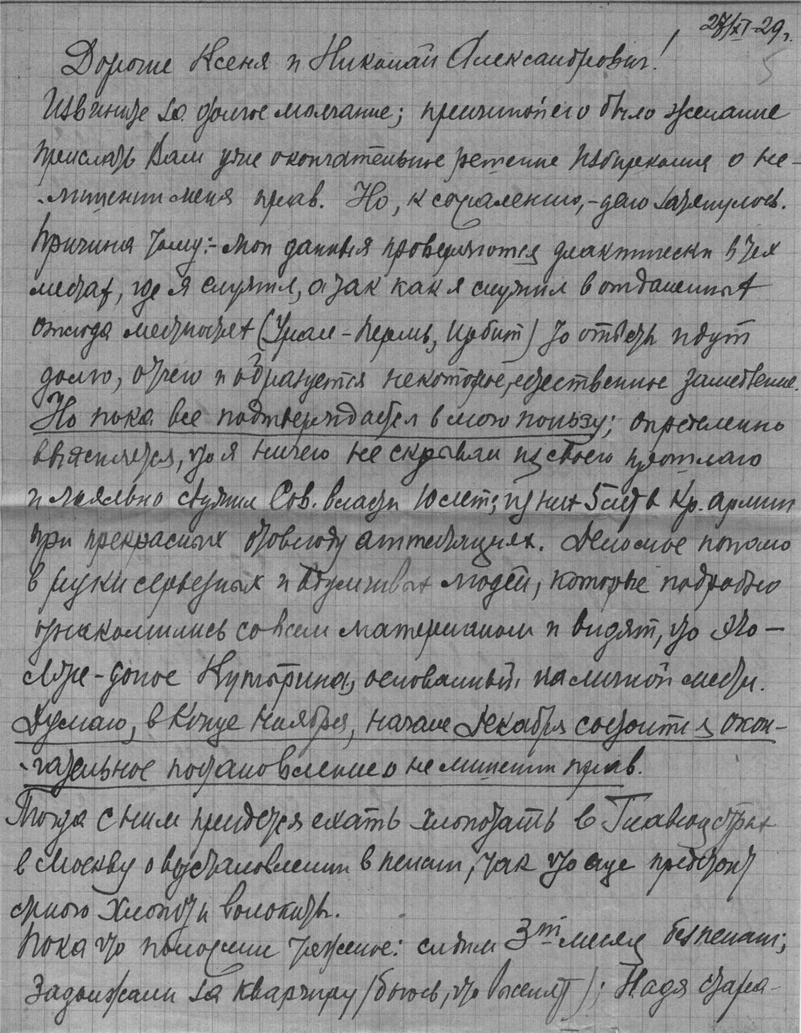 27/XI-29г.
5
Дорогие Ксеня и Николай Александрович!
Извините за долгое молчание; причиной его было желание
прислать Вам уже окончательное решение Избиркома о не-
лишении меня прав. Но, к сожалению, - дело затянулось.
Причина тому: - мои данныя проверяются фактически в тех
местах, где я служил, а так как я служил в отдаленных
отсюда местностях (Урал - Пермь, Ирбит) то ответы идут
долго, отчего и образуется некоторое, естественное замедление.
Но пока все подтверждается в мою пользу; определенно
выясняется, что я ничего не скрывал из своего прошлаго
и лояльно служил Сов. власти 10 лет; из них 5 лет в Кр. армии
при прекрасных отовсюду аттестациях. Дело мое попало
в руки серьезных и вдумчивых людей, которые подробно
ознакомились со всем материалом и видят, что это -
лже-донос Кутырина, основанный на личной мести.
Думаю, в конце Ноября, начале Декабря состоится окон-
чательное постановление о нелишении прав.
Тогда с ним придется ехать хлопотать в Главсоцстрах
в Москву о восстановлении в пенсии, так что еще предстоит
много хлопот и волокиты.
Пока что положение тяжелое: сидим 3ий месяц без пенсии;
Задолжали за квартиру (боюсь, что выселят); Надя стара-